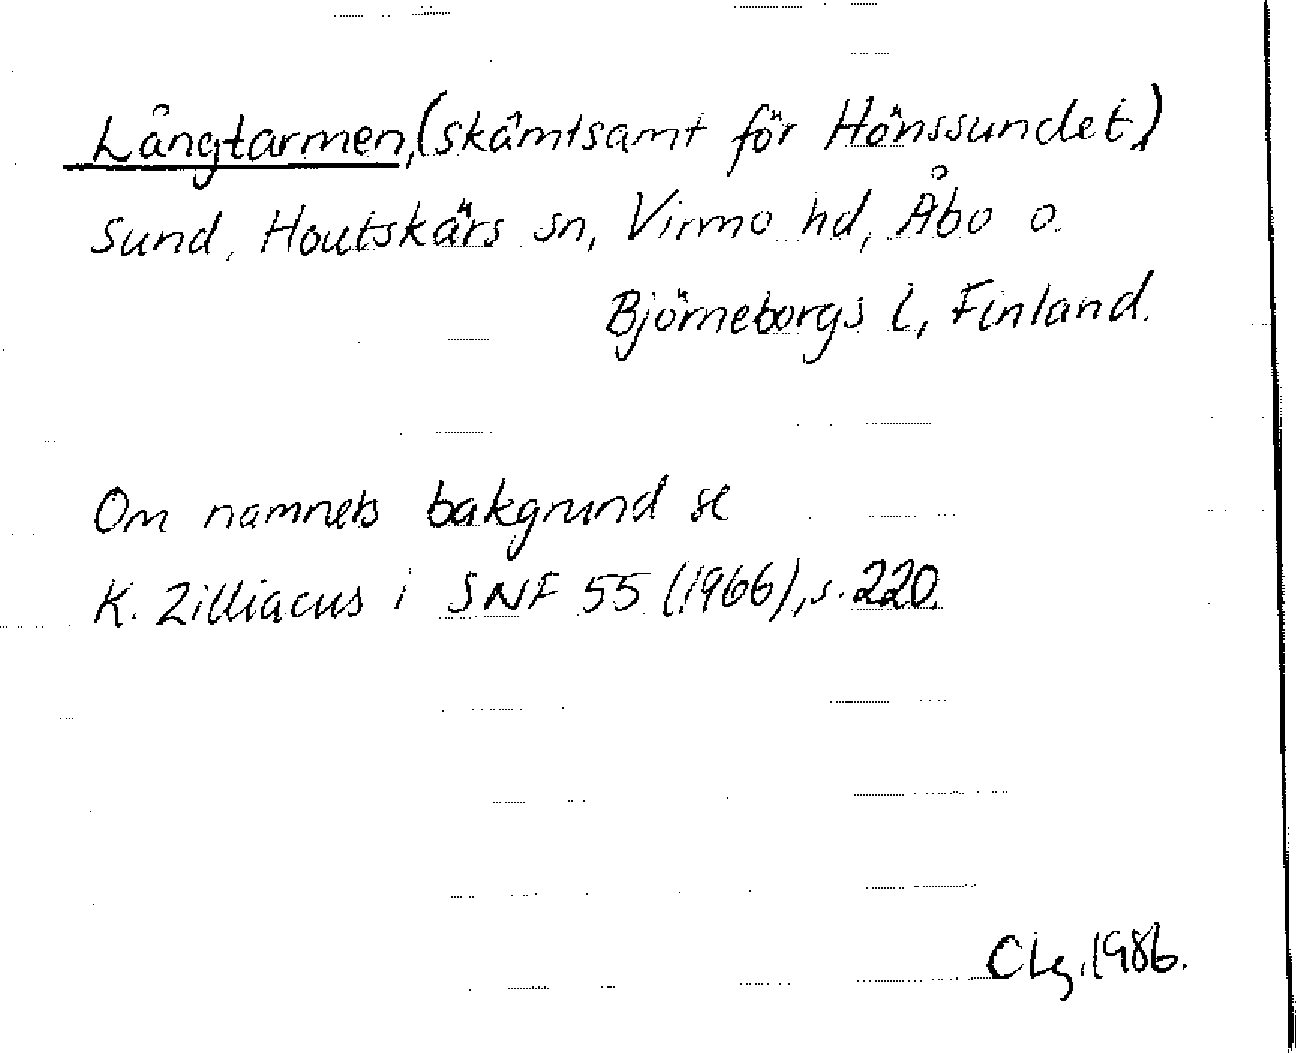 Långtarmen, (skämtsamt för Hönssundet,)
sund, Houtskärs sn, Virmo hd, Åbo o.
Björneborgs l, Finland.
Om namnets bakgrund se
K. Zilliacus i SNF 55 (1966), s. 220.
CLg. 1986.